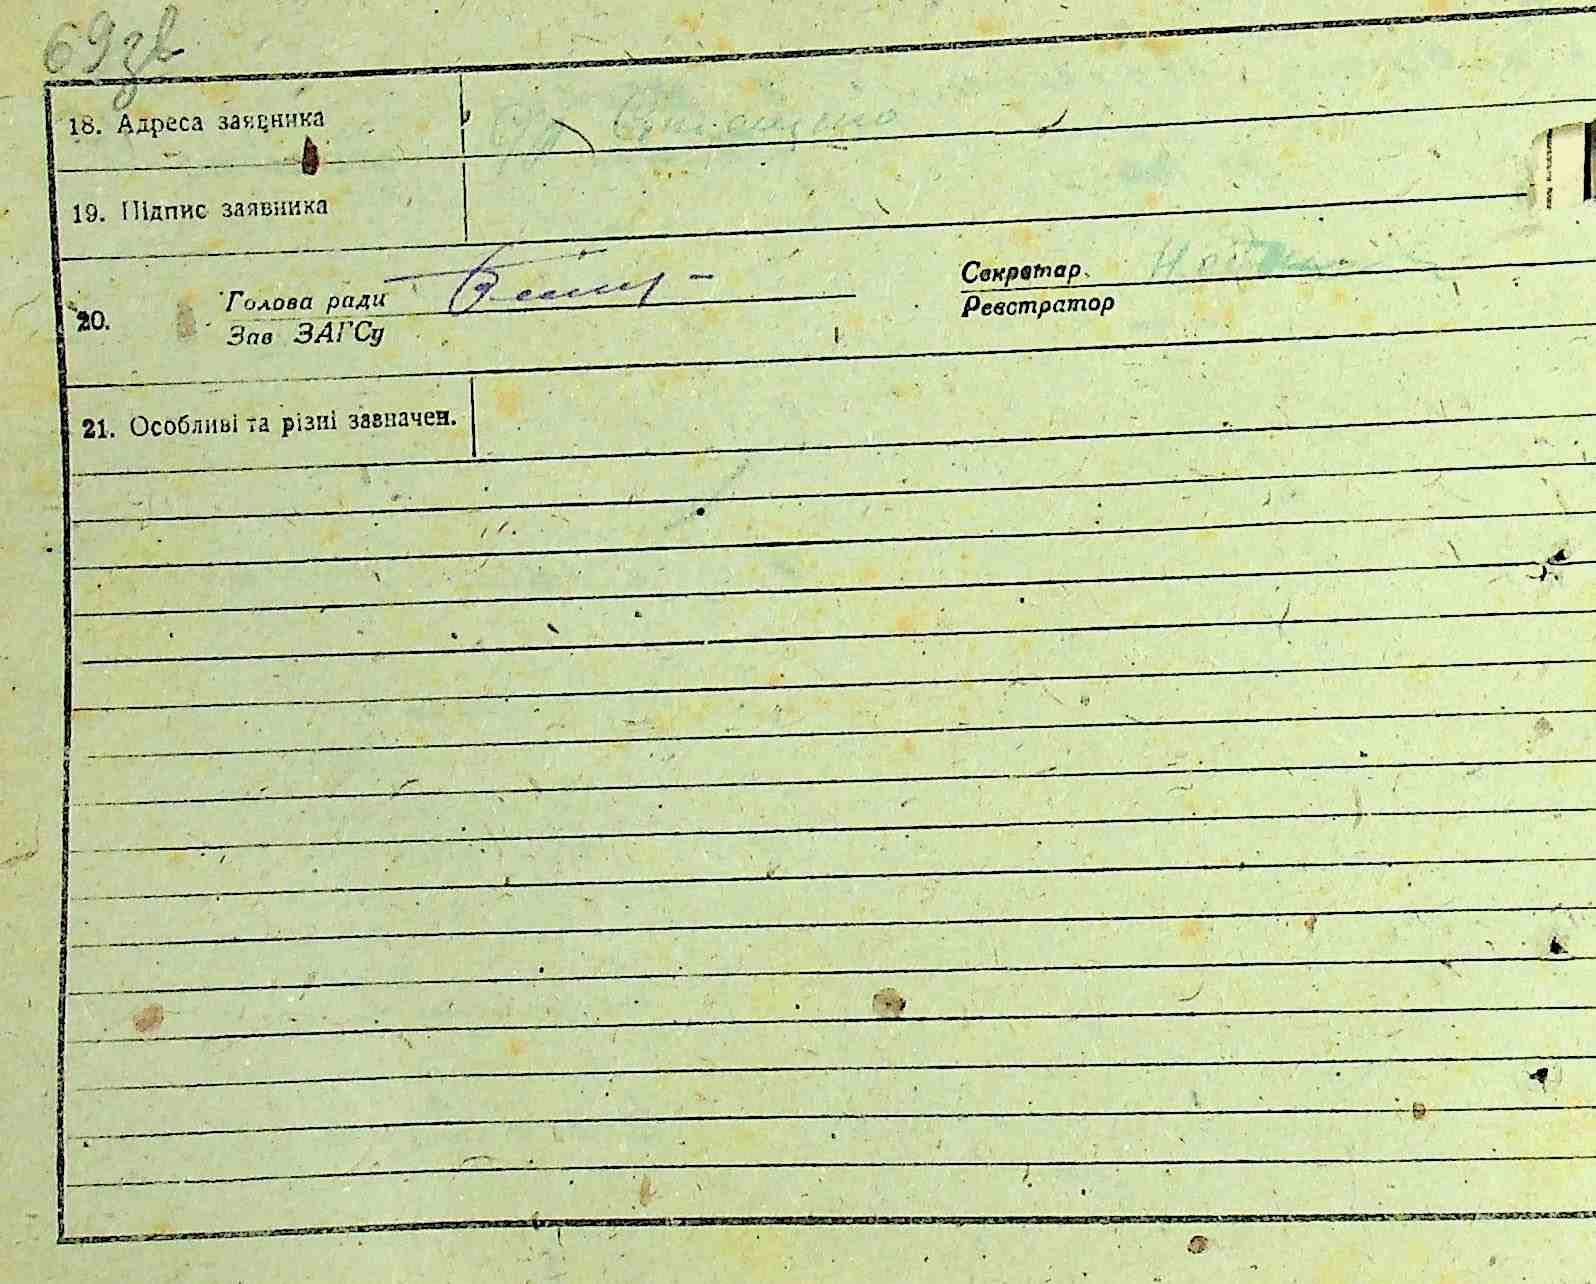 69зв
18. Адреса заявника
19. Підпис заявника
Секретар
20. Голова ради
Реєстратор
Зав ЗАГСу
21. Особливі та різні зазначен.